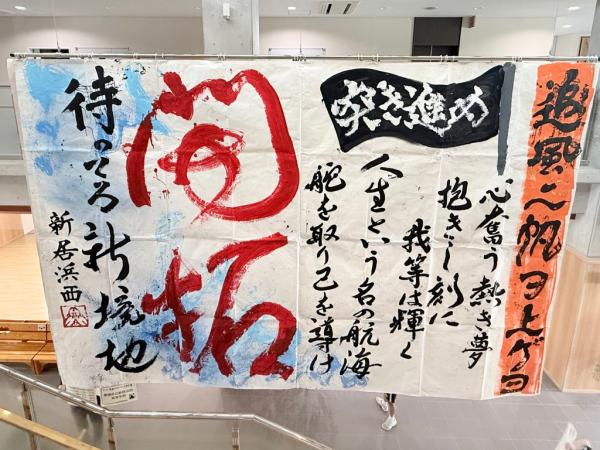 追風ニ帆ヲ上ゲヨ
突き進め
心奮う熱き夢
抱きし刻に
我等は輝く
人生という名の航海
舵を取り己を導け
開拓
待ってろ新境地
新居浜西